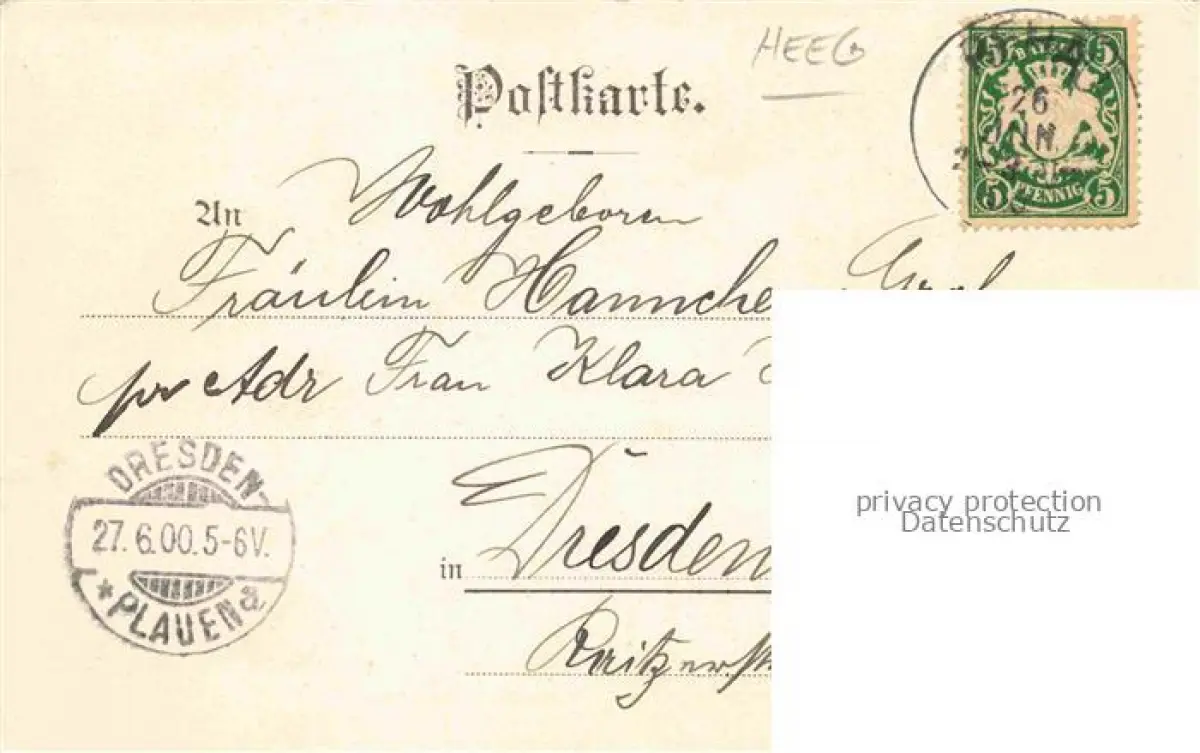 HEEG
Postkarte.
5 BAYERN 5
26
JUN
5 PFENNIG 5
An Wohlgeboren
Fräulein Hannche
pr Adr Frau Klara
DRESDEN
27. 6.00.5-6V.
* PLAUEN a.
in Dresden
privacy protection
Datenschutz